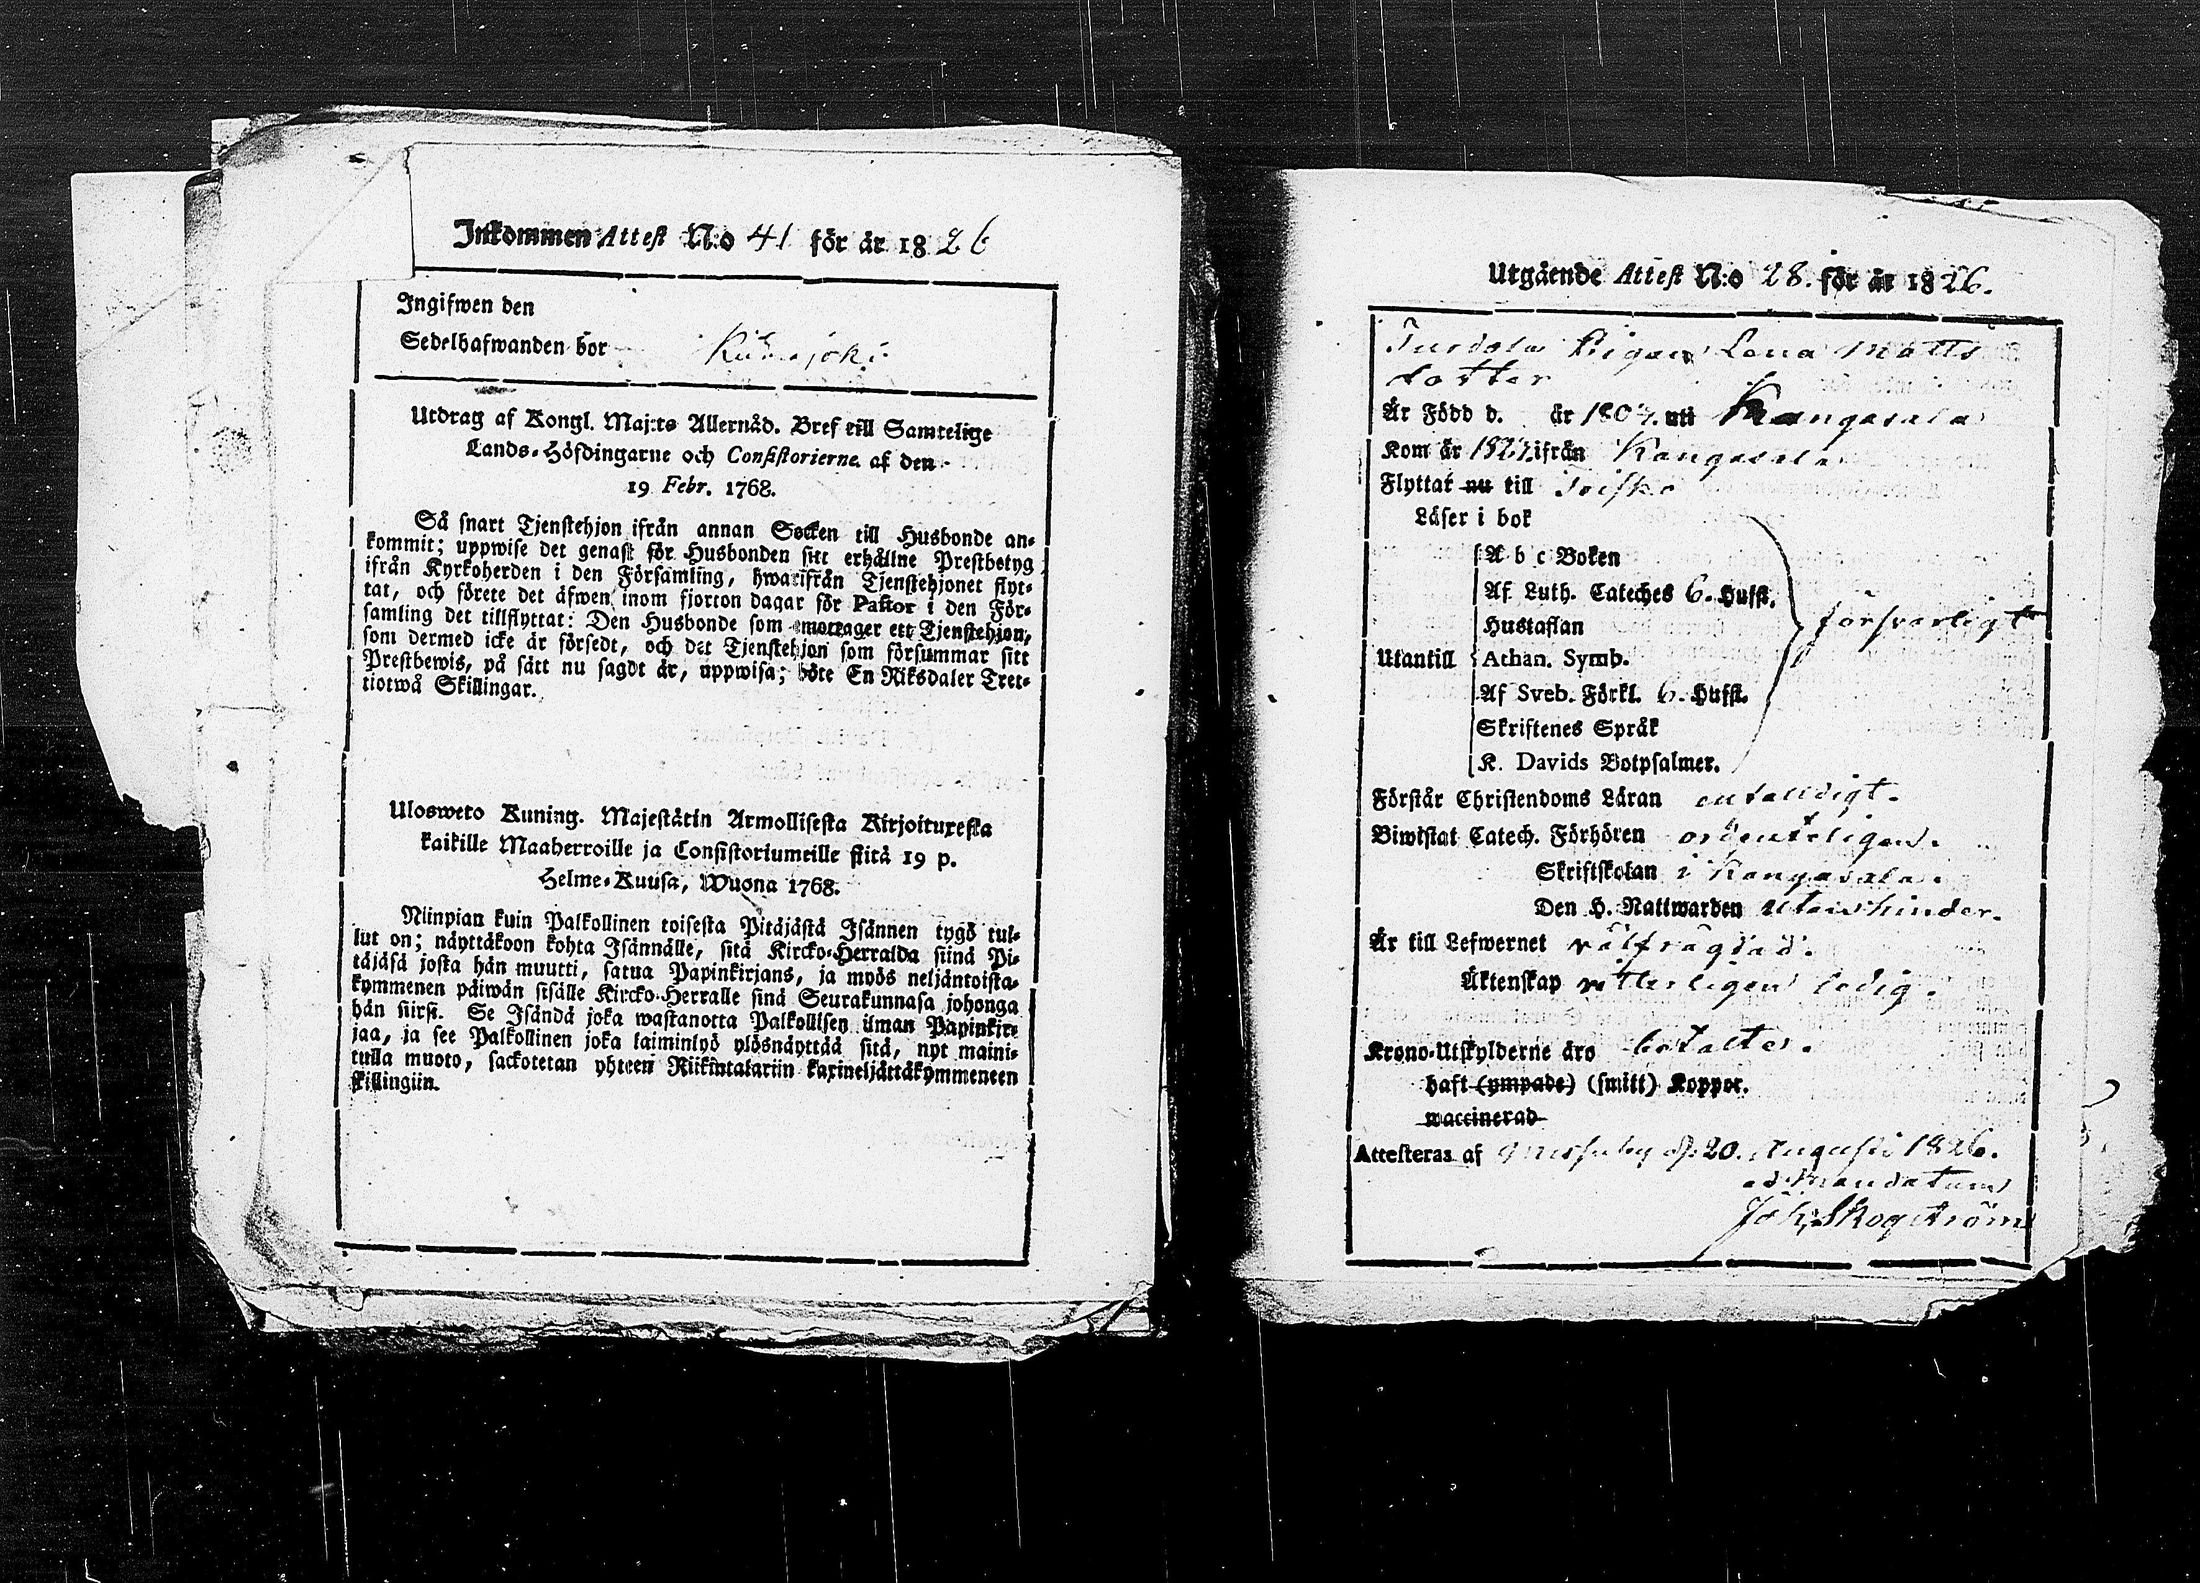 Inkommen Attest N:o 41 för år 1826
Ingifwen den
Sedelhafwanden bor
Utdrag af Kongl. Maj:ts Allernåd. Bref till Samtelige
Lands-Höfdingarne och Consistorierne af den
19 Febr. 1768.
Så snart Tjenstehjon ifrån annan Socken till Husbonde an-
kommit; uppwise det genast för Husbonden sitt erhållne Prestbetyg
ifrån Kyrkoherden i den Församling, hwarifrån Tjenstehjonet flyt-
tat, och förete det äfwen inom fjorton dagar för Pastor i den För-
samling det tillflyttat: Den Husbonde som emottager ett Tjenstehjon,
som dermed icke är försedt, och det Tjenstehjon som försummar sitt
Prestbewis, på sätt nu sagdt är, uppwisa; böte En Riksdaler Tret-
tiotwå Skillingar.
Ulosweto Kuning. Majestätin Armollisesta Kirjoituxesta
kaikille Maaherroille ja Consistoriumeille siitä 19 p.
Helme-Kuusa, Wuona 1768.
Niinpian kuin Palkollinen toisesta Pitäjästä Isännen tygö tul-
lut on; näyttäkoon kohta Isännälle, sitä Kircko-Herralda siinä Pi-
täjäsä josta hän muutti, satua Papinkirjans, ja myös neljäntoista-
kymmenen päiwän sisälle Kircko-Herralle sinä Seurakunnasa johonga
hän siirsi. Se Isändä joka wastanotta Palkollisen ilman Papinkir-
jaa, ja see Palkollinen joka laiminlyö ylösnäyttää sitä, nyt maini-
tulla muoto, sackotetan yhteen Riikintalariin kaxineljättäkymmeneen
skillingiin.
Utgående Attest N:o 28. för år 1826.
Pigan Lena Matts
dotter
Är Född d. år 1804. uti Kangasala
Kom år ifrån Kangasala
Flyttar nu till
Läser i bok
A b c Boken
Af Luth. Cateches 6. Hufst.
Hustaflan
försvarligt
Utantill Athan. Symb.
Af Sveb. Förkl. 6. Hufst.
Skriftenes Språk
K. Davids Botpsalmer.
Förstår Christendoms Läran enfalldigt.
Biwistat Catech. Förhören ordenteligen.
Skriftskolan i Kangasala.
Den H. Nattwarden utan hinder.
Är till Lefwernet välfrägdad.
Äktenskap vitterligen ledig.
Krono-Utskylderne äro betalte.
haft (ympade) (smitt) Koppor.
waccinerad
Attesteras af d. 20. Augusti 1826.
ad mandatum
Joh. Skogström